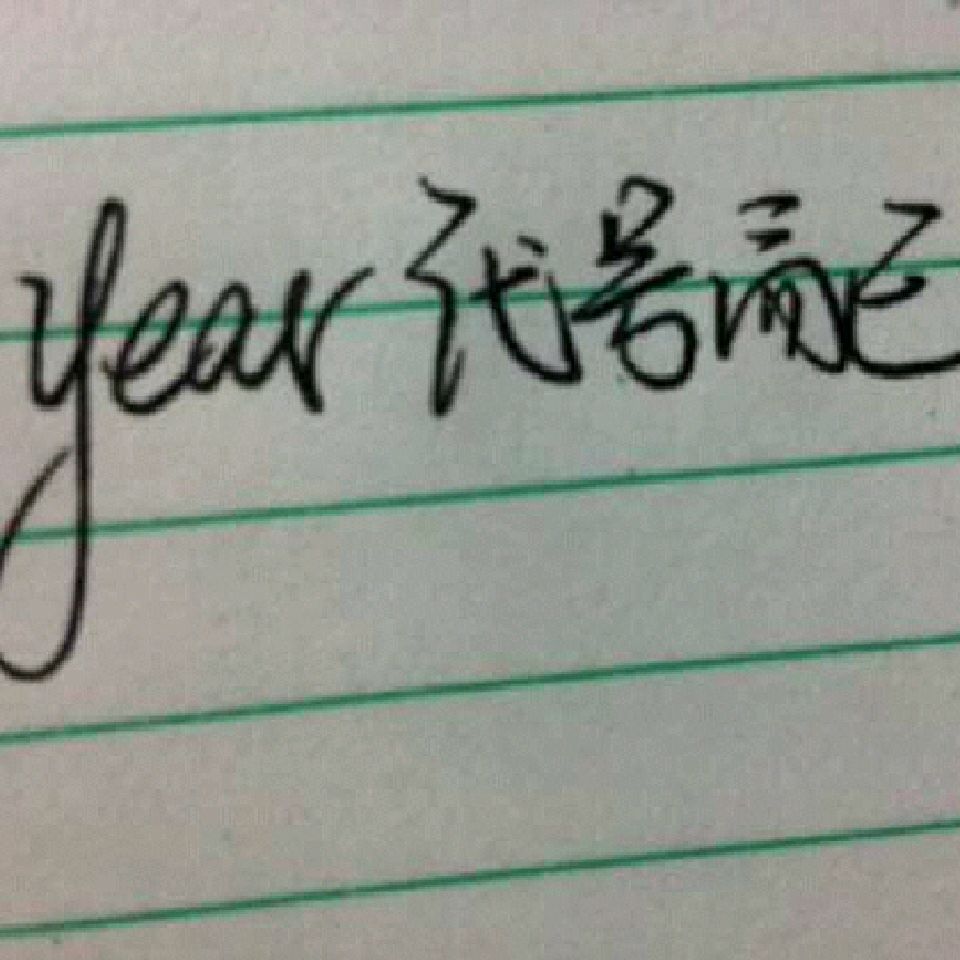 year代号而已